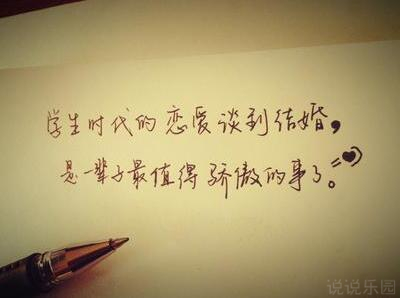 学生时代的恋爱谈到结婚，
是一辈子最值得骄傲的事了。
说说乐园